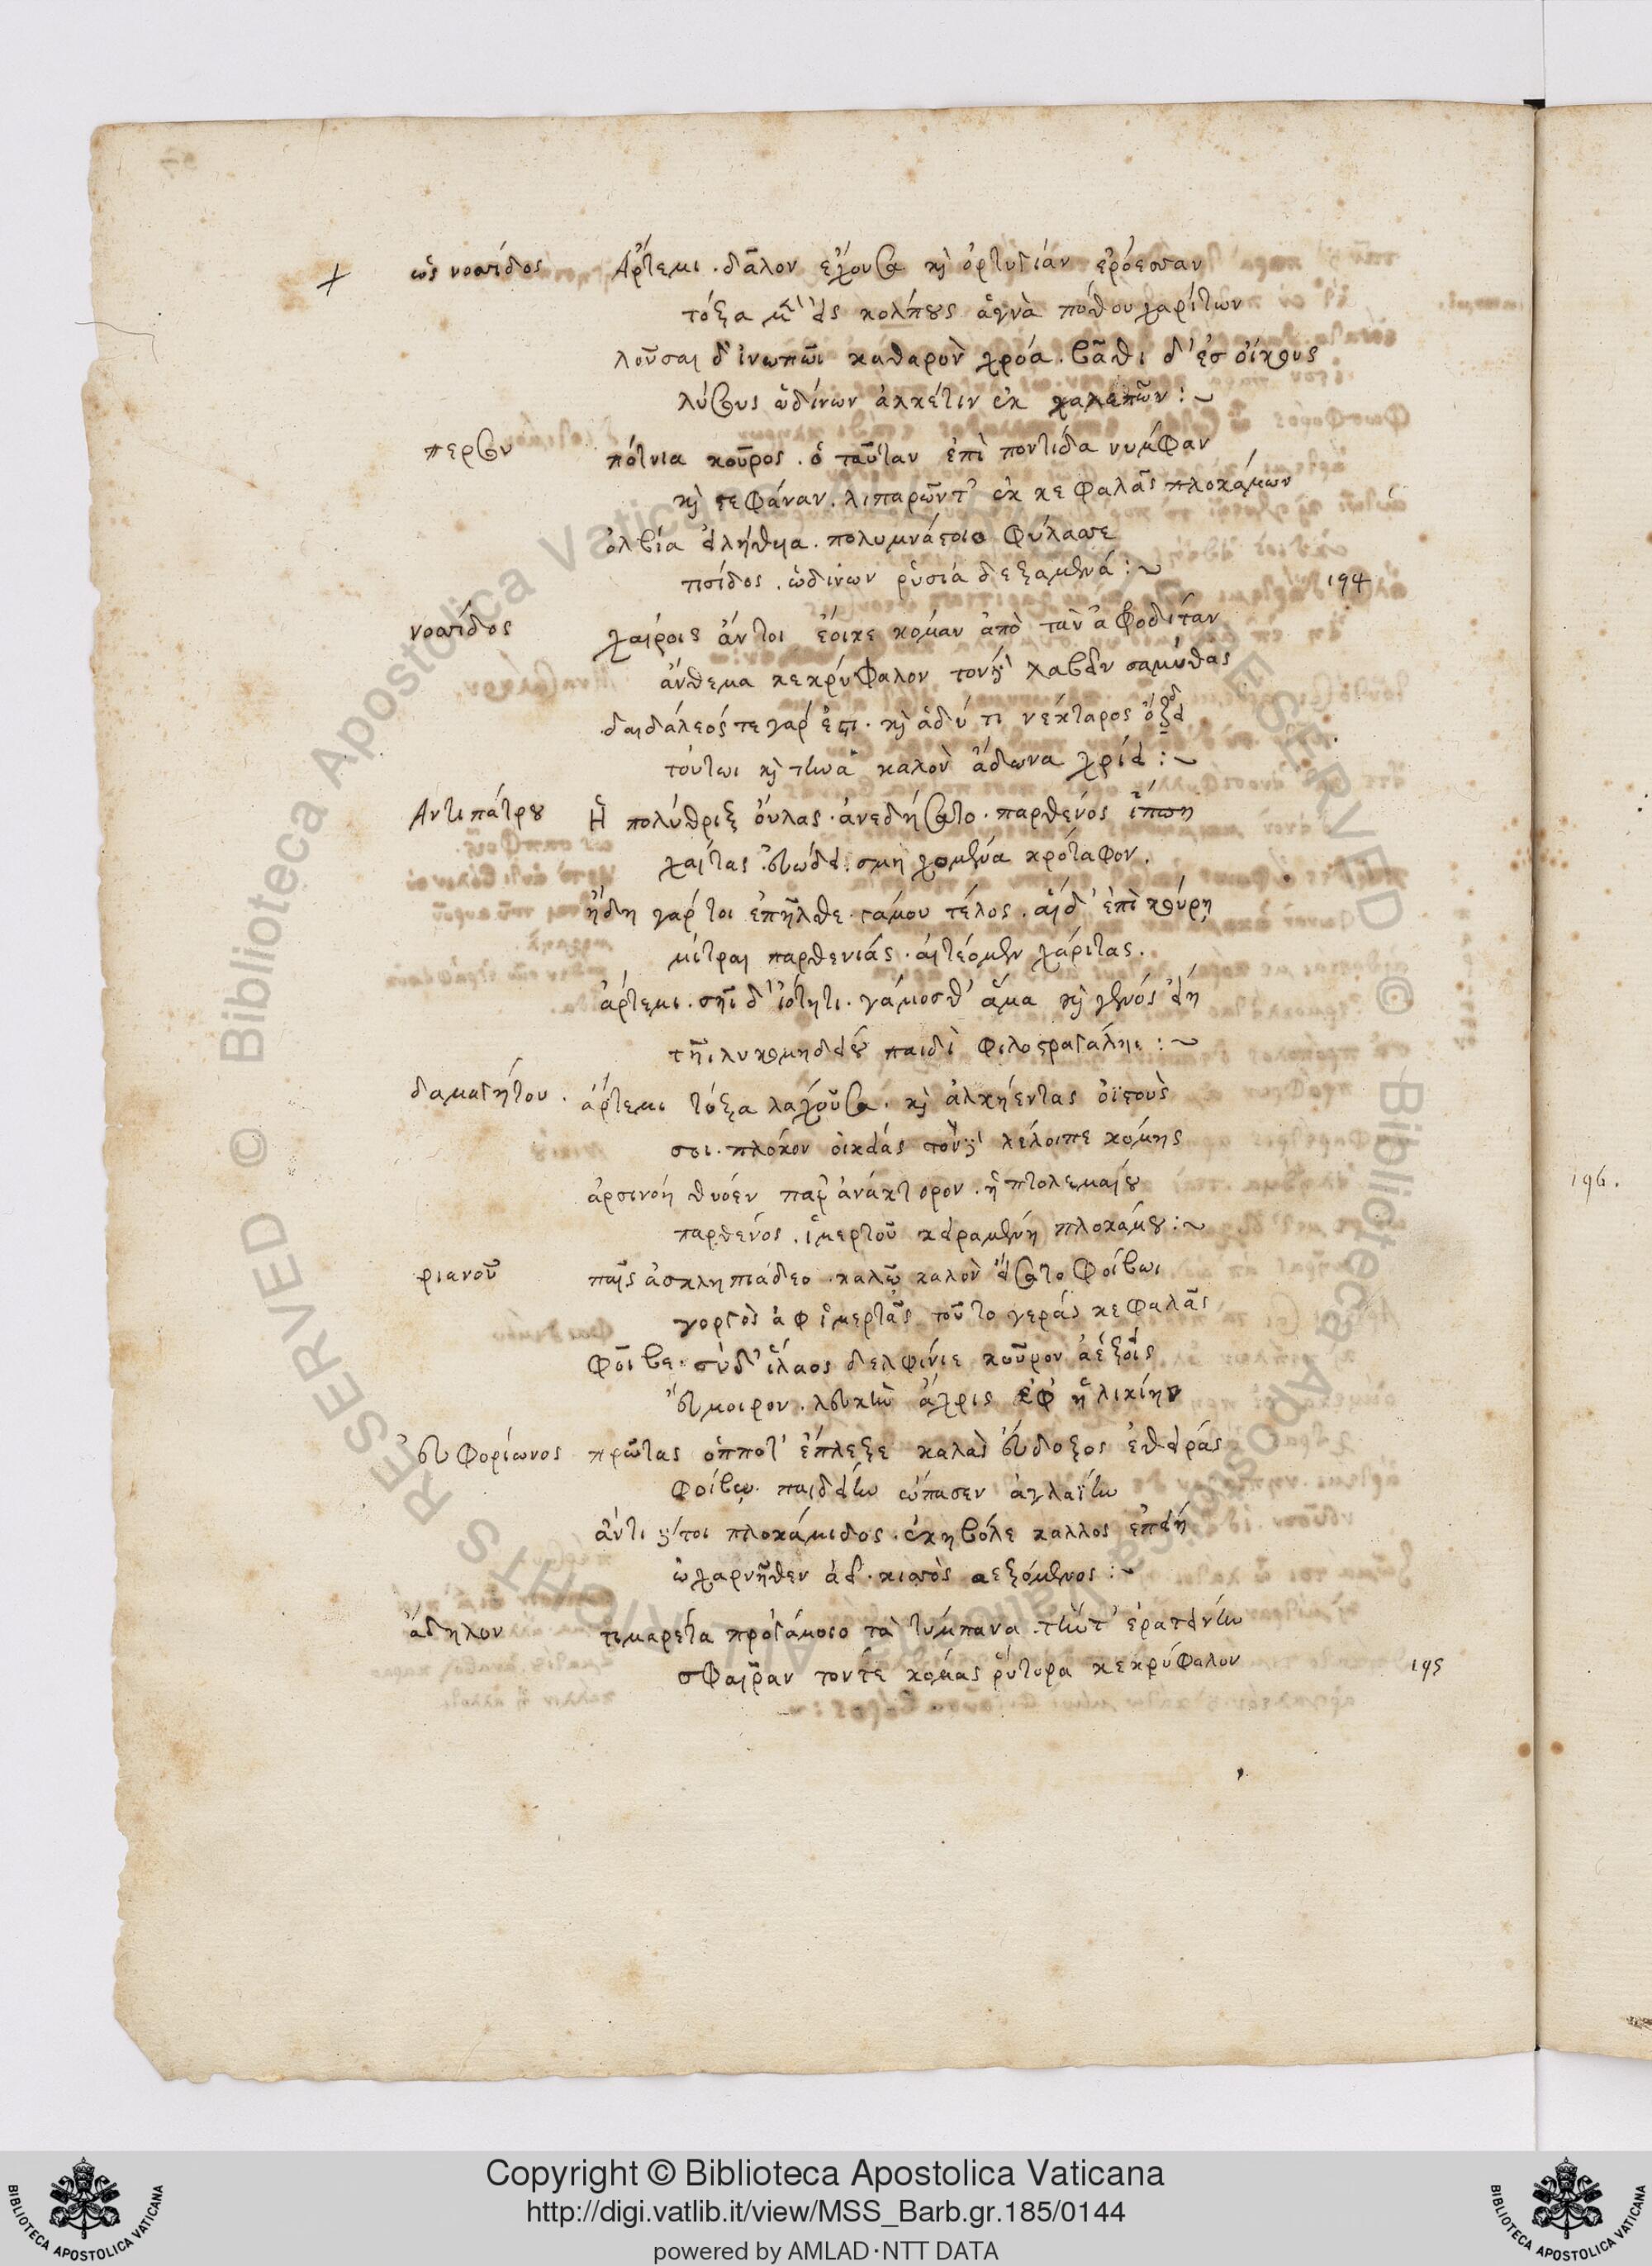 ὡς νοσσίδος Ἄρτεμι. δᾶλον ἔχουσα καὶ ὀρτυγίαν ἐρόεσσαν
τόξα μὲν εἰς κόλπους ἁγνὰ πόθου χαρίτων
λοῦσαι δ' ἰνωπῶι καθαρὸν χρόα. βᾶθι δ' ἐσ οἴκους
λύσους ὠδίνων ἀλκέτιν ἐκ χαλεπῶν :~
περσου πότνια κοῦρος. ὁ ταῦταν ἐπὶ ποντίδα νυμφαν
καὶ στεφάναν. λιπαρῶντ' ἐκ κεφαλᾶς πλοκάμων
ὀλβία εἰλήθυα. πολυμνάστοιο φύλασσε
τισίδος. ὠδίνων ῥύσια δεξαμενά :~
194
νοσσίδος χαίροις ἄντοι ἔοικε κομᾶν ἀπὸ τὰν ἀφροδίταν
ἄνθεμα κεκρύφαλον τόνδε λαβεῖν σαμύθας
δαιδάλεός τε γάρ ἐστι. καὶ ἁδύ τι νέκταρος ὄζδει
τούτωι καὶ τήνα καλὸν ἄδωνα χρίει :~
Ἀντιπάτρου Ἡ πολύθριξ οὔλας. ἀνεδήσατο. παρθένος ἵππη
χαίτας. εὐώδει. σμηχομένα κρόταφον.
ἤδη γάρ τοι ἐπῆλθε γάμου τέλος. αἱ δ' ἐπὶ κούρῃ
μίτραι παρθενιάς. αἰτέομεν χάριτας.
ἄρτεμι. σῆι δ' ἰότητι. γάμοσθ' ἅμα καὶ γενός εἴη
τῆι λυκομηδείου παιδὶ φιλοστραγάληι :~
δαμαγήτου. ἄρτεμι τόξα λαχοῦσα. καὶ ἀλκήεντας ὀϊστοὺς
σοι. πλόκον οἰκείας τόνδε λέλοιπε κόμης
ἀρσινόη θυόεν παρ' ἀνάκτορον. ἡ πτολεμαίου
παρθένος. ἱμερτοῦ κειραμένη πλοκάμου :~
ριανοῦ παῖς ἀσκληπιάδεο. καλῷ καλὸν εἵσατο Φοίβωι
γοργὸς ἀφ ἱμερτᾶς τοῦτο γεράς κεφαλᾶς
Φοῖβε. σὺ δ' ἵλαος δελφίνιε κοῦρον ἀέξοις
εὔμοιρον. λευκὴν ἄχρις ἐφ ἡλικίην
εὐφορίωνος πρώτας ὁππότ' ἔπλεξε καλὰς εὔδοξος ἐθείρας
Φοίβῳ. παιδείην ὤπασεν ἀγλαΐην
ἀντι δέ τοι πλοκάμιδος. ἑκηβόλε καλλος ἐπείη
ὠχαρνῆθεν ἀεί. κισσὸς αεξόμενος :~
ἄδηλον τιμαρέτα πρὸ γάμοιο τὰ τύμπανα. τήν τ' ἐρατεινὴν
σφαῖραν τόν τε κόμας ῥύτορα κεκρύφαλον
195
196.
Copyright © Biblioteca Apostolica Vaticana
http://digi.vatlib.it/view/MSS_Barb.gr.185/0144
powered by AMLAD·NTT DATA